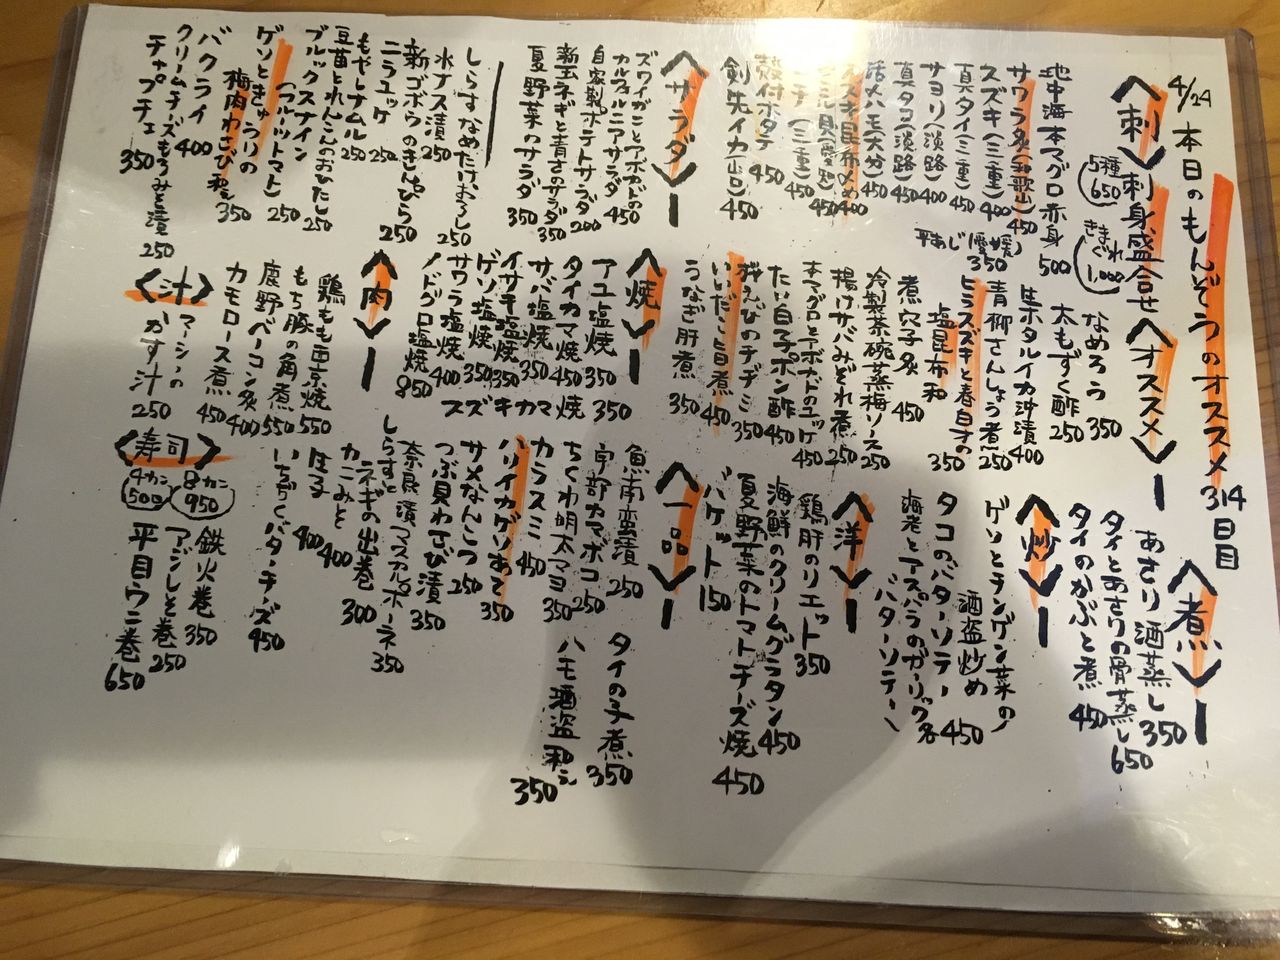 4/24 本日のもんどうのオススメ 314日目
〈刺〉刺身盛合せ
5種 650
きまぐれ 1,000
地中海本マグロ赤身 500
サワラ炙(和歌山) 450
スズキ(三重) 400
真タイ(三重) 450
サヨリ(淡路) 400
真タコ(淡路) 450
活〆ハモ(大分) 450
スズキ昆布〆め 400
殻付ホタテ 450
剣先イカ(山口) 450
平あじ(愛媛) 350
〈サラダ〉
ズワイガニとアボカドの
カルフォルニアサラダ 450
自家製ポテトサラダ 200
新玉ネギと青さのサラダ 350
夏野菜のサラダ 350
しらすなめたけおろし 250
水ナス漬 250
新ゴボウのきんぴら 250
ニラユッケ 250
もやしナムル 250
豆苗とれんこんのおひたし 250
ブルックスナイン
(フルーツトマト) 250
ゲソときゅうりの
梅肉わさび和え 350
バクライ 400
クリームチーズもろみそ漬 250
チャプチェ 350
〈オススメ〉
なめろう 350
太もずく酢 250
生ホタルイカ沖漬 400
青柳さんしょう煮 250
ヒラスズキと春白才の
塩昆布和 350
煮穴子炙 450
冷製茶碗蒸梅ソース 250
揚げサバみぞれ煮 250
本マグロとアボカドのユッケ 450
たい白子ポン酢 450
桜えびのチヂミ 350
いいだこ旨煮 450
うなぎ肝煮 350
〈焼〉
アユ塩焼 350
タイカマ焼 450
サバ塩焼 350
イサキ塩焼 350
ゲソ塩焼 350
サワラ塩焼 400
ノドグロ塩焼 850
スズキカマ焼
〈肉〉
鶏もも西京焼 550
もち豚の角煮 550
鹿野ベーコン炙 400
カモロース煮 450
〈汁〉
マーシンの
かす汁 250
〈煮〉
あさり酒蒸し 350
タイとあさりの骨蒸し 650
タイのかぶと煮 450
〈炒〉
ゲソとチンゲン菜の
酒盗炒め 450
タコのバターソテー
海老とアスパラのガーリック
バターソテー 各450
〈洋〉
鶏肝のリエット 350
海鮮のクリームグラタン 450
夏野菜のトマトチーズ焼 450
バケット 150
〈一品〉
魚南蛮漬 250
宇部カマボコ 250
ちくわ明太マヨ 350
カラスミ 450
ハリイカゲソあて 350
サメなんこつ 250
つぶ貝わさび漬 350
奈良漬マスカルポーネ 350
しらすと
ネギの出巻 300
カニみそ 400
生子 400
いちぢくバターチーズ 450
タイの子煮 350
ハモ酒盗和え 350
〈寿司〉
4カン 500
8カン 950
鉄火巻 350
アジしそ巻 250
平目ウニ巻 650